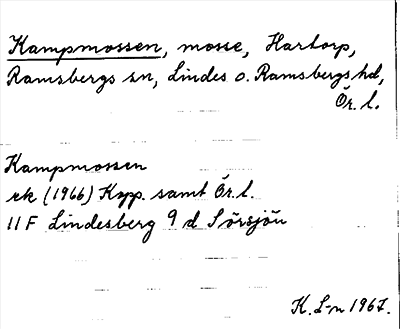 Kampmossen, mosse, Hartorp,
Ramsbergs sn, Lindes o. Ramsbergs hd,
Ör. l.
Kampmossen
ek (1966) Kopp. samt Ör. l.
11 F Lindesberg 9 d Sörsjön
K. L-n 1967.